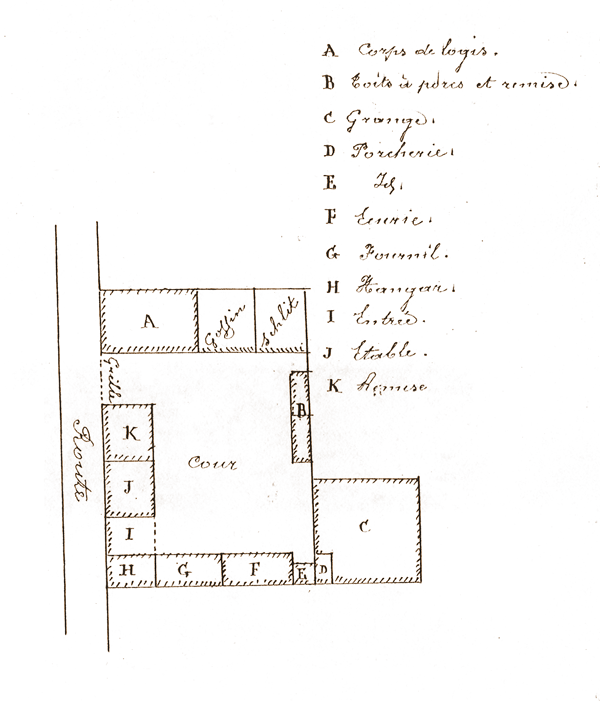 A Corps de logis.
B Toits à porcs et remise.
C Grange.
D Porcherie.
E Id.
F Ecurie.
G Fournil.
H Hangar.
I Entrée.
J Etable.
K Remise
A
Goffin
Schlit
Grille
B
K
Route
J
Cour
C
I
H
G
F
E
D